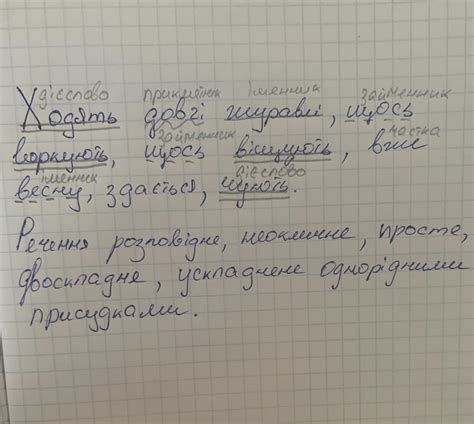 дієслово прикметник іменник займенник
Ходять довгі журавлі, щось
займенник частка
воркують, щось віщують, вже
іменник дієслово
весну, здається, чують.
Речення розповідне, неокличне, просте,
двоскладне, ускладнене однорідними
присудками.